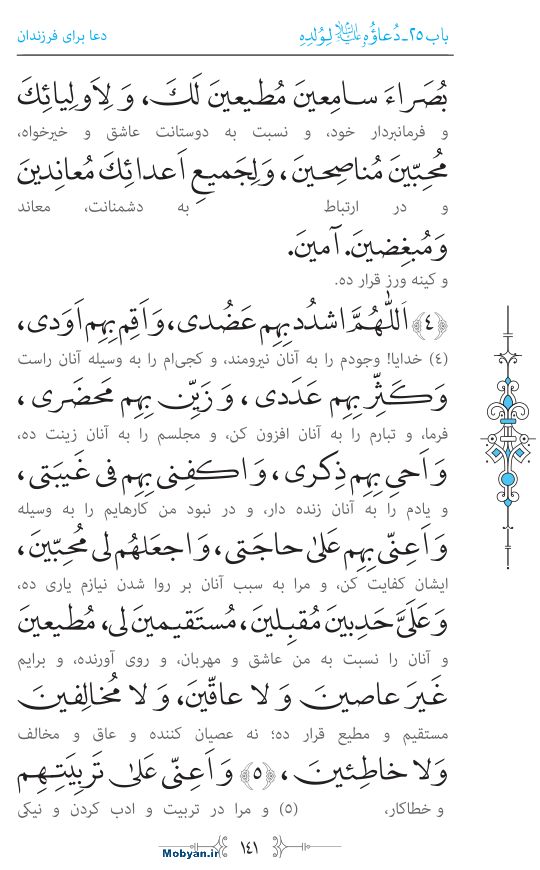 باب ۲۵ـ دُعاؤُهُ عليه السلام لِوُلدِهِ
دعا برای فرزندان
بُصَراءَ سامِعينَ مُطيعينَ لَكَ، وَ لِاَولِيائِكَ
و فرمانبردار خود، و نسبت به دوستانت عاشق و خیرخواه،
مُحِبّينَ مُناصِحينَ، وَ لِجَميعِ اَعدائِكَ مُعانِدينَ
و در ارتباط به دشمنانت، معاند
وَ مُبغِضينَ. آمينَ.
و کینه ورز قرار ده.
﴿۴﴾ اَللّٰهُمَّ اشدُد بِهِم عَضُدی، وَ اَقِم بِهِم اَوَدی،
(۴) خدایا! وجودم را به آنان نیرومند، و کجی‌ام را به وسیله آنان راست
وَ كَثِّر بِهِم عَدَدی، وَ زَيِّن بِهِم مَحضَری،
فرما، و تبارم را به آنان افزون کن، و مجلسم را به آنان زینت ده،
وَ اَحیِ بِهِم ذِكری، وَ اكفِنی بِهِم فی غَيبَتی،
و یادم را به آنان زنده دار، و در نبود من کارهایم را به وسیله
وَ اَعِنّی بِهِم عَلیٰ حاجَتی، وَ اجعَلهُم لی مُحِبّينَ،
ایشان کفایت کن، و مرا به سبب آنان بر روا شدن نیازم یاری ده،
وَ عَلَیَّ حَدِبينَ مُقبِلينَ، مُستَقيمينَ لی، مُطيعينَ
و آنان را نسبت به من عاشق و مهربان، و روی آورنده، و برایم
غَيرَ عاصينَ وَ لا عاقّينَ، وَ لا مُخالِفينَ
مستقیم و مطیع قرار ده؛ نه عصیان کننده و عاق و مخالف
وَ لا خاطِئينَ، ﴿۵﴾ وَ اَعِنّی عَلیٰ تَربِيَتِهِم
و خطاکار، (۵) و مرا در تربیت و ادب کردن و نیکی
۱۴۱
Mobyan.ir